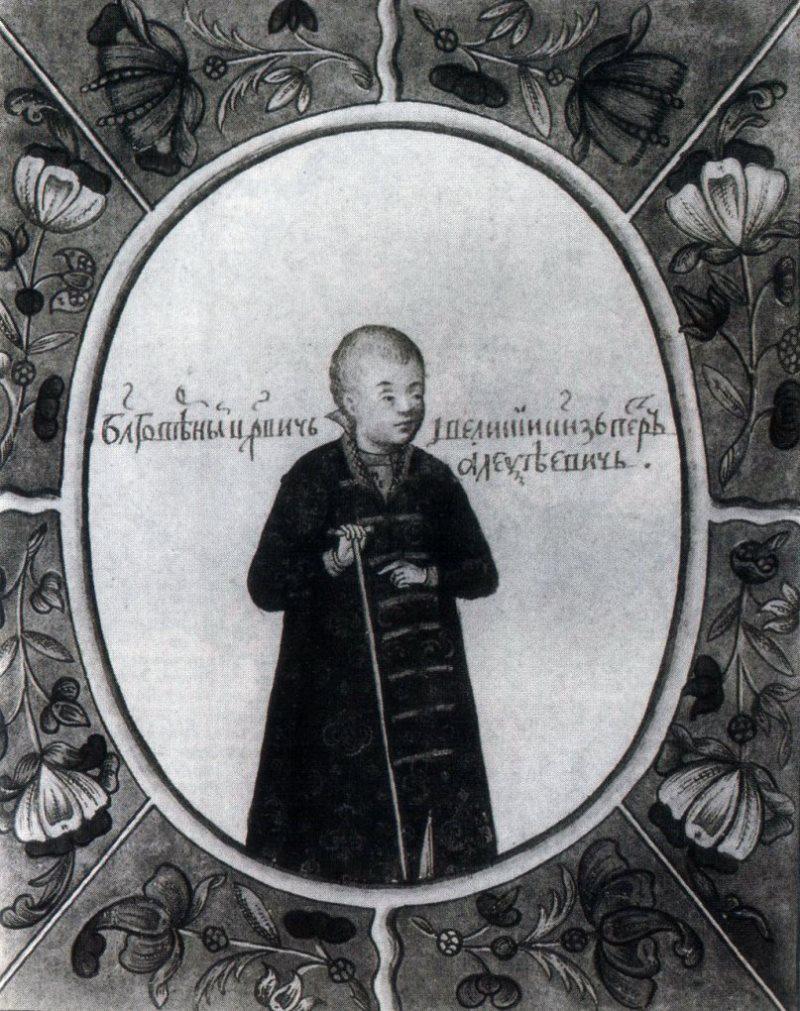 Блговѣрный црвичь ивеликии кнзь петръ
алеѯѣевичь.